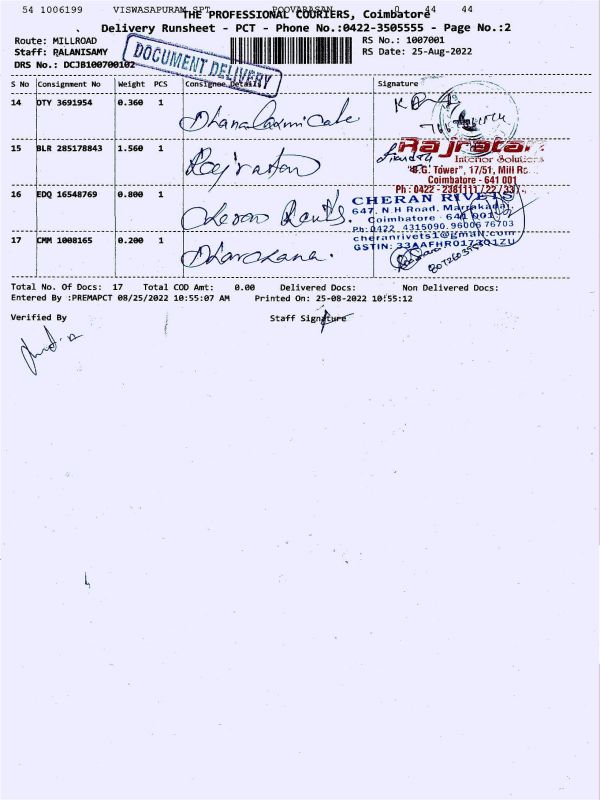 54 1006199 VISWASAPURAM SPT POOVARASAN 0 44 44
THE PROFESSIONAL COURIERS, Coimbatore
Delivery Runsheet - PCT - Phone No.:0422-3505555 - Page No.:2
Route: MILLROAD RS No.: 1007001
Staff: RALANISAMY RS Date: 25-Aug-2022
DRS No.: DCJB100700102
DOCUMENT DELIVERY
S No Consignment No Weight PCS Consignee Details Signature
14 OTY 3691954 0.360 1 Dhanalaxmi Cake
15 BLR 285178843 1.560 1 Rajratan
Rajratan
Interior Solutions
17/51, Mill
Coimbatore - 641 001
Ph : 0422 - 2381111/22/33/
16 EDQ 16548769 0.800 1 Cheran Rivets.
CHERAN RIVETS
647, N.H Road, Marrakadai,
Coimbatore - 641 001
Ph: 0422 4315090, 96006 76703
cheranrivets1@gmail.com
GSTIN: 33AAFHR0173Q1ZU
17 CMM 1008165 0.200 1 Dharshana.
Total No. Of Docs: 17 Total COD Amt: 0.00 Delivered Docs: Non Delivered Docs:
Entered By :PREMAPCT 08/25/2022 10:55:07 AM Printed On: 25-08-2022 10:55:12
Verified By Staff Signature